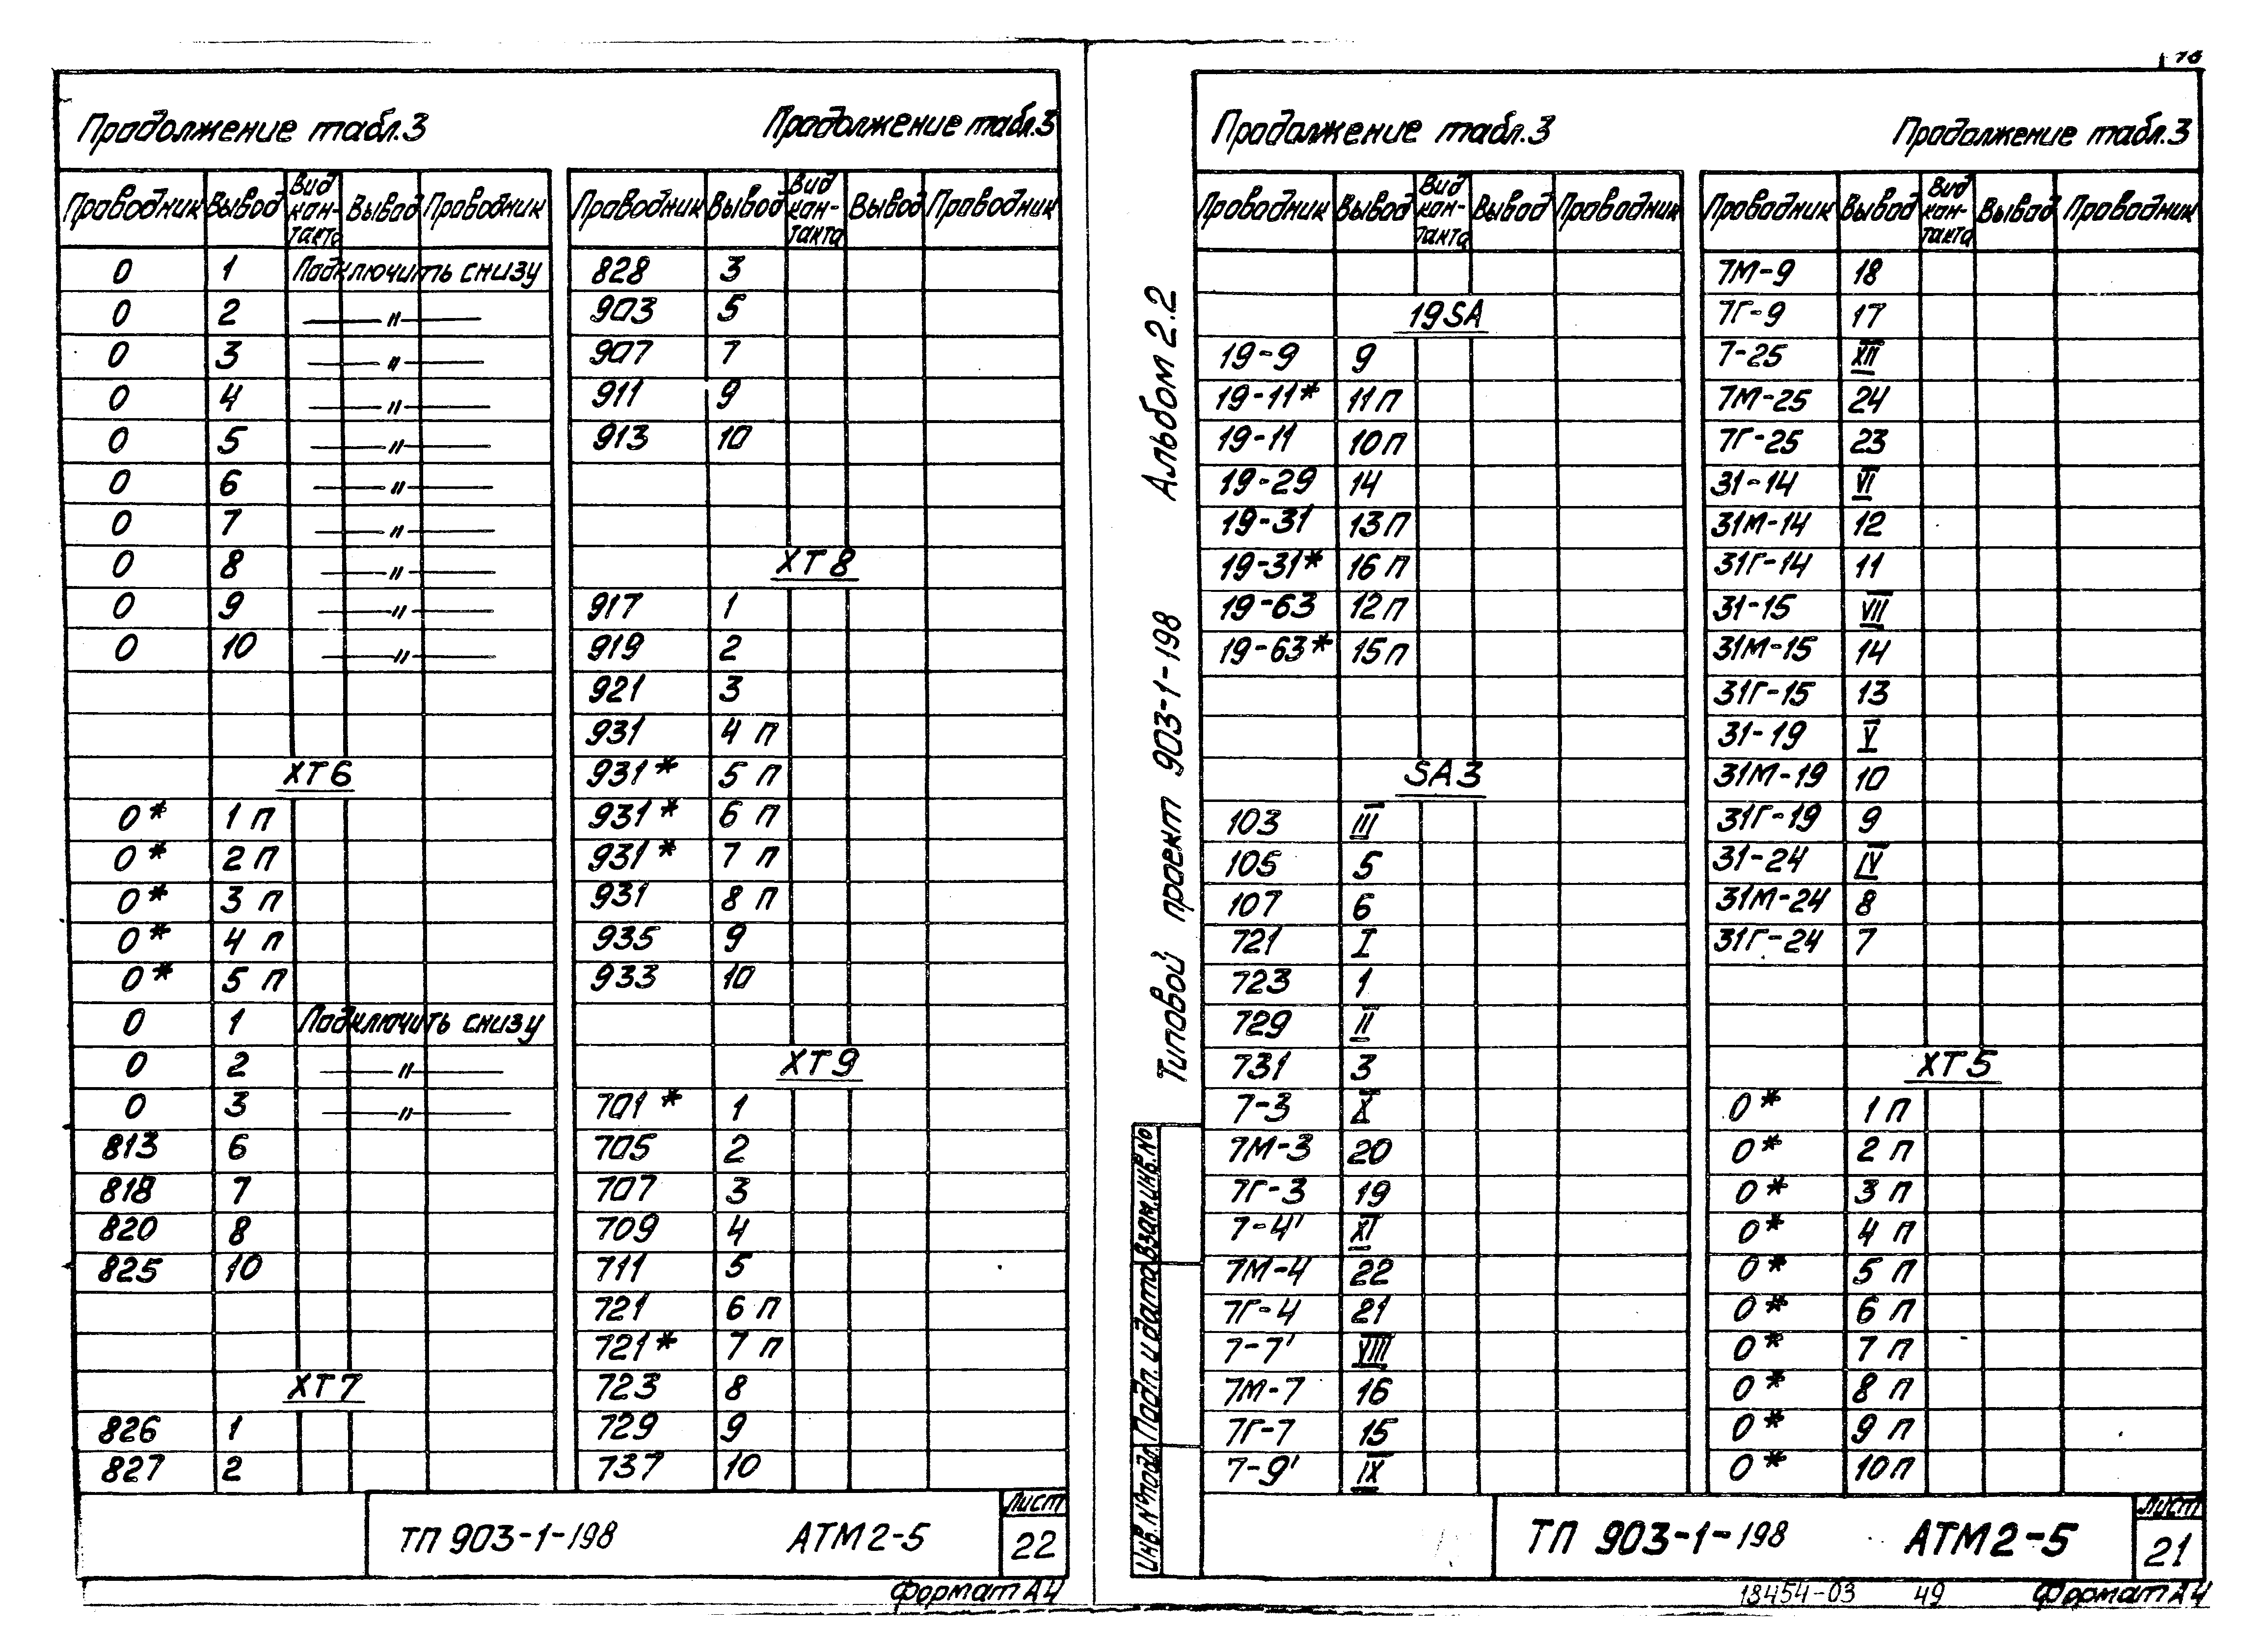 Продолжение табл.3
Продолжение табл.3
Проводник Вывод Вид кон-такта Вывод Проводник
0 1 Подключить снизу
0 2 —〃—
0 3 —〃—
0 4 —〃—
0 5 —〃—
0 6 —〃—
0 7 —〃—
0 8 —〃—
0 9 —〃—
0 10 —〃—
ХТ6
0* 1 П
0* 2 П
0* 3 П
0* 4 П
0* 5 П
0 1 Подключить снизу
0 2 —〃—
0 3 —〃—
813 6
818 7
820 8
825 10
ХТ7
826 1
827 2
Проводник Вывод Вид кон-такта Вывод Проводник
828 3
903 5
907 7
911 9
913 10
ХТ8
917 1
919 2
921 3
931 4 П
931* 5 П
931* 6 П
931* 7 П
931 8 П
935 9
933 10
ХТ9
701* 1
705 2
707 3
709 4
711 5
721 6 П
721* 7 П
723 8
729 9
737 10
ТП 903-1-198 АТМ2-5
Лист
22
Формат А4
Альбом 2.2
Типовой проект 903-1-198
Взам.инв.№
Подп. и дата
Инв.№подл.
Продолжение табл.3
Продолжение табл.3
Проводник Вывод Вид кон-такта Вывод Проводник
19SA
19-9 9
19-11* 11П
19-11 10П
19-29 14
19-31 13П
19-31* 16 П
19-63 12П
19-63* 15П
SA3
103 III
105 5
107 6
721 I
723 1
729 II
731 3
7-3 X
7М-3 20
7Г-3 19
7-4' XI
7М-4 22
7Г-4 21
7-7' VIII
7М-7 16
7Г-7 15
7-9' IX
Проводник Вывод Вид кон-такта Вывод Проводник
7М-9 18
7Г-9 17
7-25 XII
7М-25 24
7Г-25 23
31-14 VI
31М-14 12
31Г-14 11
31-15 VII
31М-15 14
31Г-15 13
31-19 V
31М-19 10
31Г-19 9
31-24 IV
31М-24 8
31Г-24 7
ХТ5
0* 1 П
0* 2 П
0* 3 П
0* 4 П
0* 5 П
0* 6 П
0* 7 П
0* 8 П
0* 9 П
0* 10П
ТП 903-1-198 АТМ2-5
Лист
21
18454-03 49 Формат А4